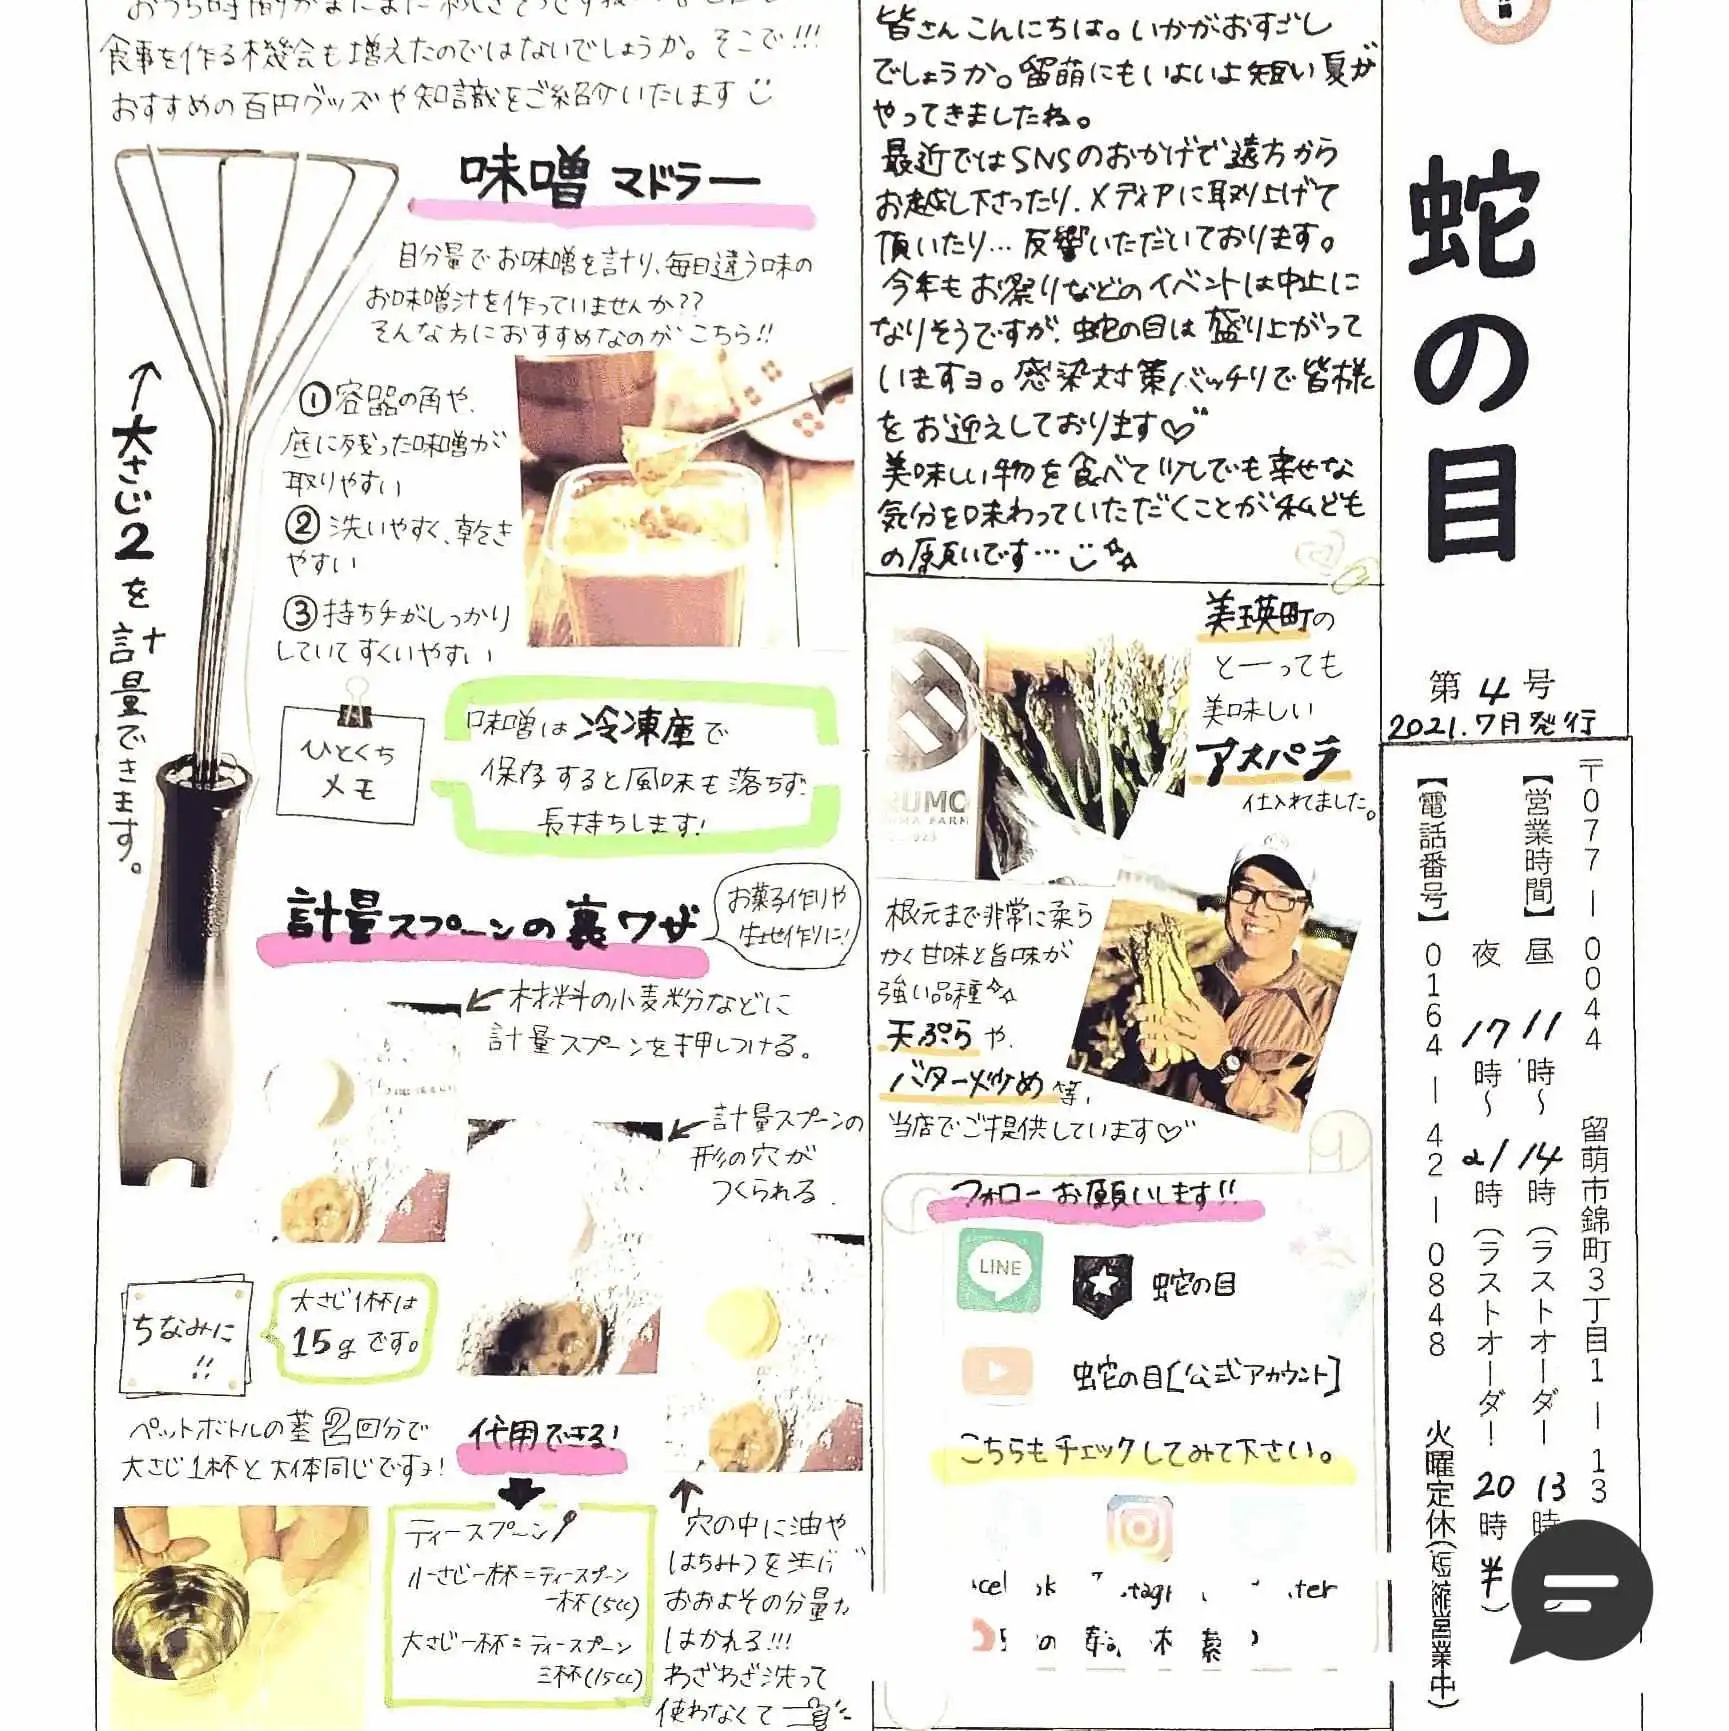 蛇の目
第4号
2021.7月発行
〒077-0044 留萌市錦町3丁目1-13
【営業時間】昼 11時~14時(ラストオーダー 13時
夜 17時~21時(ラストオーダー 20時半)
【電話番号】0164-42-0848 火曜定休(短縮営業中)
皆さんこんにちは。いかがおすごし
でしょうか。留萌にもいよいよ短い夏が
やってきましたね。
最近ではSNSのおかげで遠方から
お越し下さったり、メディアに取り上げて
頂いたり…反響いただいております。
今年もお祭りなどのイベントは中止に
なりそうですが、蛇の目は盛り上がって
いますヨ。感染対策バッチリで皆様
をお迎えしております♡
美味しい物を食べて少しでも幸せな
気分を味わっていただくことが私ども
の願いです…
美瑛町の
とーっても
美味しい
アスパラ
仕入れてました。
RUMO
FARM
根元まで非常に柔ら
かく甘味と旨味が
強い品種
天ぷらや、
バター炒め等、
当店でご提供しています♡
フォローお願いします!!
LINE
蛇の目
蛇の目[公式アカウント]
こちらもチェックしてみて下さい。
食事を作る機会も増えたのではないでしょうか。そこで!!!
おすすめの百円グッズや知識をご紹介いたします
味噌マドラー
目分量でお味噌を計り、毎日違う味の
お味噌汁を作っていませんか??
そんな方におすすめなのがこちら!!
①容器の角や、
底に残った味噌が
取りやすい
②洗いやすく、乾き
やすい
③持ち手がしっかり
していてすくいやすい
↑大さじ2を計量できます。
ひとくち
メモ
味噌は冷凍庫で
保存すると風味も落ちず
長持ちします!
計量スプーンの裏ワザ
お菓子作りや
生地作りに!
←材料の小麦粉などに
計量スプーンを押しつける。
←計量スプーンの
形の穴が
つくられる
↑
穴の中に油や
はちみつを注げ
おおよその分量が
はかれる!!!
わざわざ洗って
使わなくて
ちなみに
!!
大さじ1杯は
15gです。
ペットボトルの蓋2回分で
大さじ1杯と大体同じですヨ!
代用できる!
ティースプーン
小さじ一杯=ティースプーン
一杯(5cc)
大さじ一杯=ティースプーン
三杯(15cc)